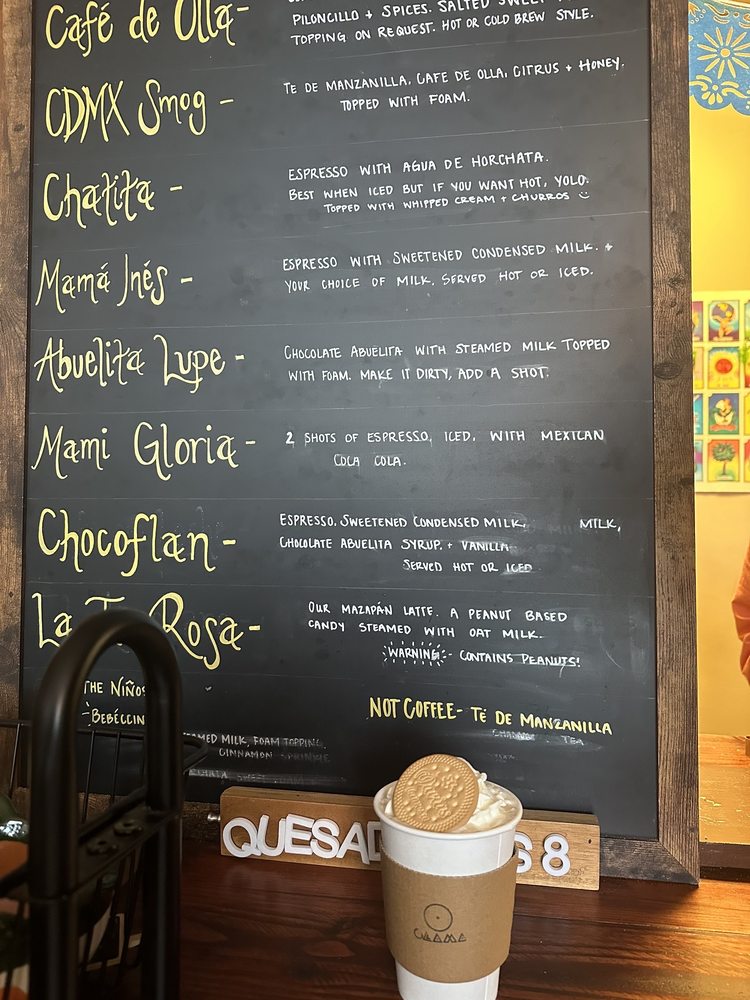 Café de Olla-
PILONCILLO + SPICES. SALTED SWEET
TOPPING ON REQUEST. HOT OR COLD BREW STYLE.
CDMX Smog -
TE DE MANZANILLA, CAFE DE OLLA, CITRUS + HONEY.
TOPPED WITH FOAM.
Chatita -
ESPRESSO WITH AGUA DE HORCHATA.
BEST WHEN ICED BUT IF YOU WANT HOT, YOLO.
TOPPED WITH WHIPPED CREAM + CHURROS
Mamá Inés -
ESPRESSO WITH SWEETENED CONDENSED MILK. +
YOUR CHOICE OF MILK. SERVED HOT OR ICED.
Abuelita Lupe -
CHOCOLATE ABUELITA WITH STEAMED MILK TOPPED
WITH FOAM. MAKE IT DIRTY, ADD A SHOT.
Mami Gloria -
2 SHOTS OF ESPRESSO, ICED, WITH MEXICAN
COCA COLA.
Chocoflan -
ESPRESSO, SWEETENED CONDENSED MILK, MILK,
CHOCOLATE ABUELITA SYRUP, + VANILLA
SERVED HOT OR ICED
La Rosa-
OUR MAZAPÁN LATTE. A PEANUT BASED
CANDY STEAMED WITH OAT MILK.
WARNING - CONTAINS PEANUTS!
THE NIÑOS
NOT COFFEE- TÉ DE MANZANILLA
TEA
MILK, FOAM TOPPING,
CINNAMON SPRINKLE
QUESAD S 8